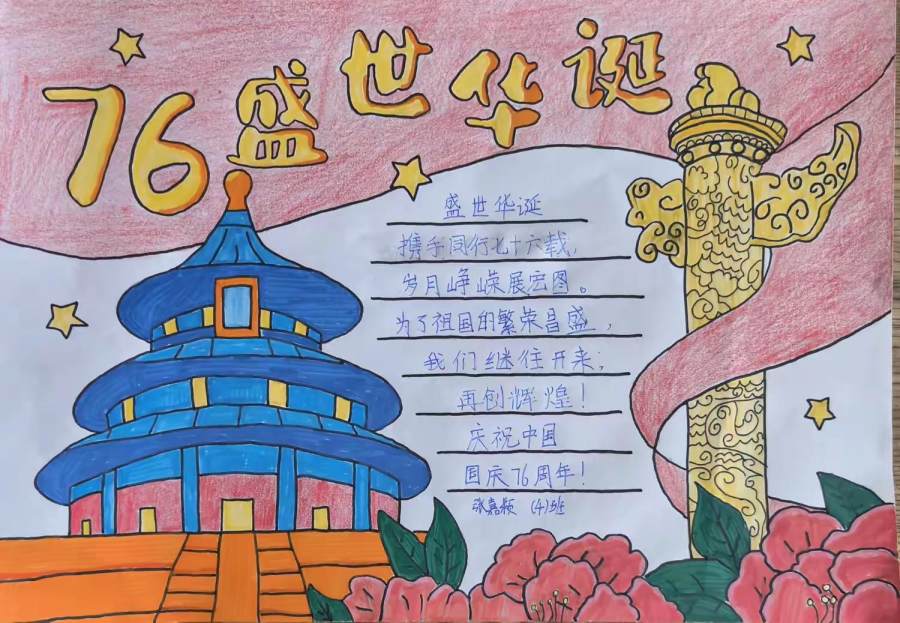 76盛世华诞
盛世华诞
携手同行七十六载,
岁月峥嵘展宏图。
为了祖国的繁荣昌盛,
我们继往开来;
再创辉煌!
庆祝中国
国庆76周年!
张嘉颖 (4)班